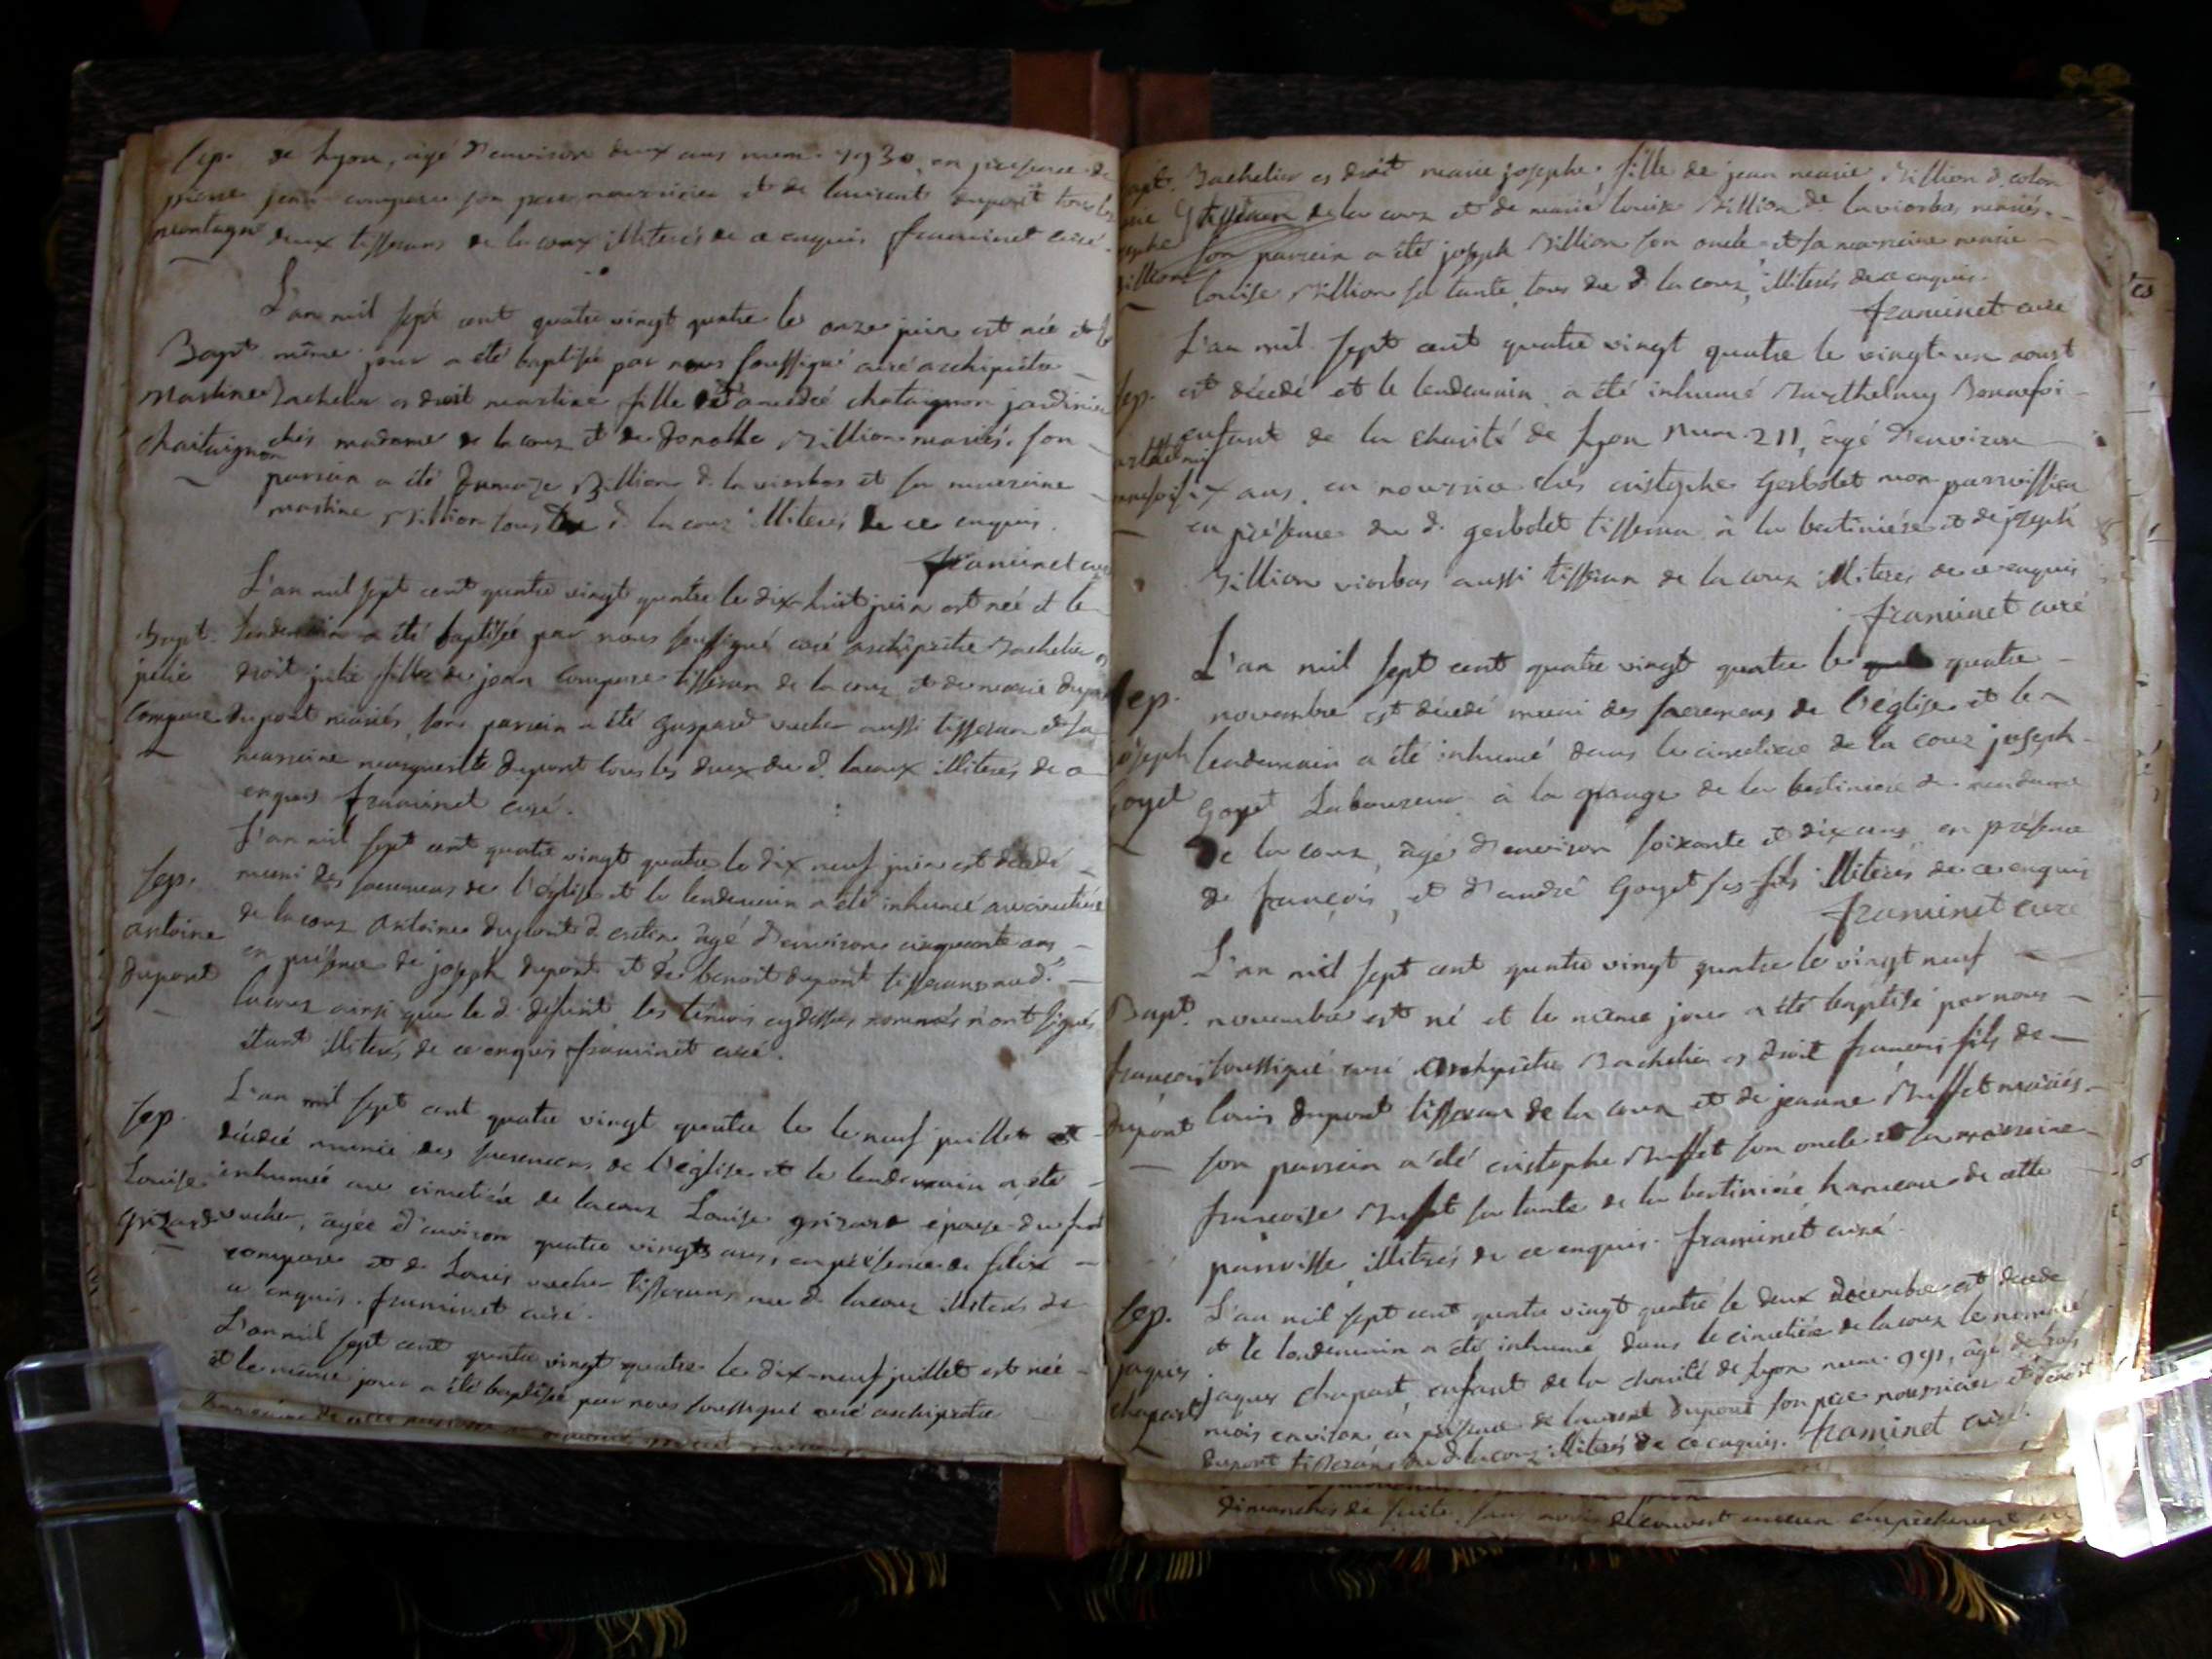 Sep. de Lyon, agé d'environ deux ans num. 7930, en presence de
pierre jean compere son pere nourricier et de laurent dupont tous les
montagne deux tisserans de lacoux illiterés de ce enquis framinet curé.
L'an mil sept cent quatre vingt quatre le onze juin est née et le
Bapt même jour a été baptisée par nous soussigné curé archiprêtre
Martine Bachelier es droit martine fille d'amedée chataignon jardinier
Chaitaignon chés madame de lacoux et de Million mariés. son
parrain a été Million d. la viorbas et sa marraine
martine Million tous du d. lacoux illiterés de ce enquis.
framinet curé
L'an mil sept cent quatre vingt quatre le dix-huit juin est née et le
Bapt. lendemain a été baptisée par nous soussigné curé archiprêtre Bachelier es
julie droit julie fille de jean Compere tisseran de lacoux et de marie dupont
Compere dupont mariés, son parrain a été gaspard vucher aussi tisseran et sa
marraine marguerite dupont tous les deux du d. lacoux illiterés de ce
enquis framinet curé.
L'an mil sept cent quatre vingt quatre le dix neuf juin est décédé
Sep. muni des sacremens de l'église et le lendemain a été inhumé au cimetière
antoine de lacoux antoine dupont d. agé d'environ cinquante ans
dupont en présence de joseph dupont et de benoit dupont tisserans au d.
lacoux ainsi que le d. défunt, les témoins cydessus nommés n'ont signés
étant illiterés de ce enquis framinet curé.
L'an mil sept cent quatre vingt quatre le le neuf juillet est
Sep. décédée munie des sacremens de l'église et le lendemain a été
Louise inhumée au cimetière de lacoux Louise grizard épouse du feu
Grizard vucher, agée d'environ quatre vingts ans, en présence de felix
compere et de Louis vucher tisserans au d. lacoux illiterés de
ce enquis. framinet curé.
L'an mil sept cent quatre vingt quatre le dix-neuf juillet est née
et le même jour a été baptisée par nous soussigné curé archiprêtre
Bapt. Bachelier es droit marie josephe, fille de jean marie Million d. colon
tisseran de la coux et de marie louise Million de la viorbas mariés.
son parrain a été joseph Million son oncle et sa marraine marie
Million louise Million sa tante, tous du d. la coux, illiterés de ce enquis.
framinet curé
L'an mil sept cent quatre vingt quatre le vingt un aoust
Sep. est décédé et le lendemain a été inhumé Barthelmy Bonnefoi
enfant de la charité de Lyon num. 211, agé d'environ
six ans, en nourrice chés cristophe Gerbolet mon parroissien
en présence du d. gerbolet tisseran à la bertinière et de joseph
Million viorbas aussi tisseran de la coux illiterés de ce enquis
framinet curé
L'an mil sept cent quatre vingt quatre le quatre
Sep. novembre est décédé muni des sacremens de l'église et le
joseph lendemain a été inhumé dans le cimetière de la coux joseph
Goyet Goyet Laboureur à la grange de la bertinière de madame
de la coux, agé d'environ soixante et dix ans, en présence
de françois, et d'andré Goyet ses fils illiterés de ce enquis
framinet curé
L'an mil sept cent quatre vingt quatre le vingt neuf
Bapt. novembre est né et le même jour a été baptisé par nous
françois soussigné curé archiprêtre Bachelier es droit francois fils de
dupont louis dupont tisseran de la coux et de jeanne Muffet mariés.
son parrain a été cristophe Muffet son oncle et sa marraine
françoise Muffet sa tante de la bertinière hameau de cette
parroisse, illiterés de ce enquis. framinet curé.
Sep. L'an mil sept cent quatre vingt quatre le deux décembre est decedé
et le lendemain a été inhumé dans le cimetière de lacoux le nommé
jaques jaques chapart, enfant de la charité de Lyon num. agé de trois
chapart mois environ en présence de laurent dupont son pere nourricier et benoit
dupont tisserans du d. lacoux illiterés de ce enquis. framinet curé.
dimanches de suite, sans avoir découvert aucun empêchement